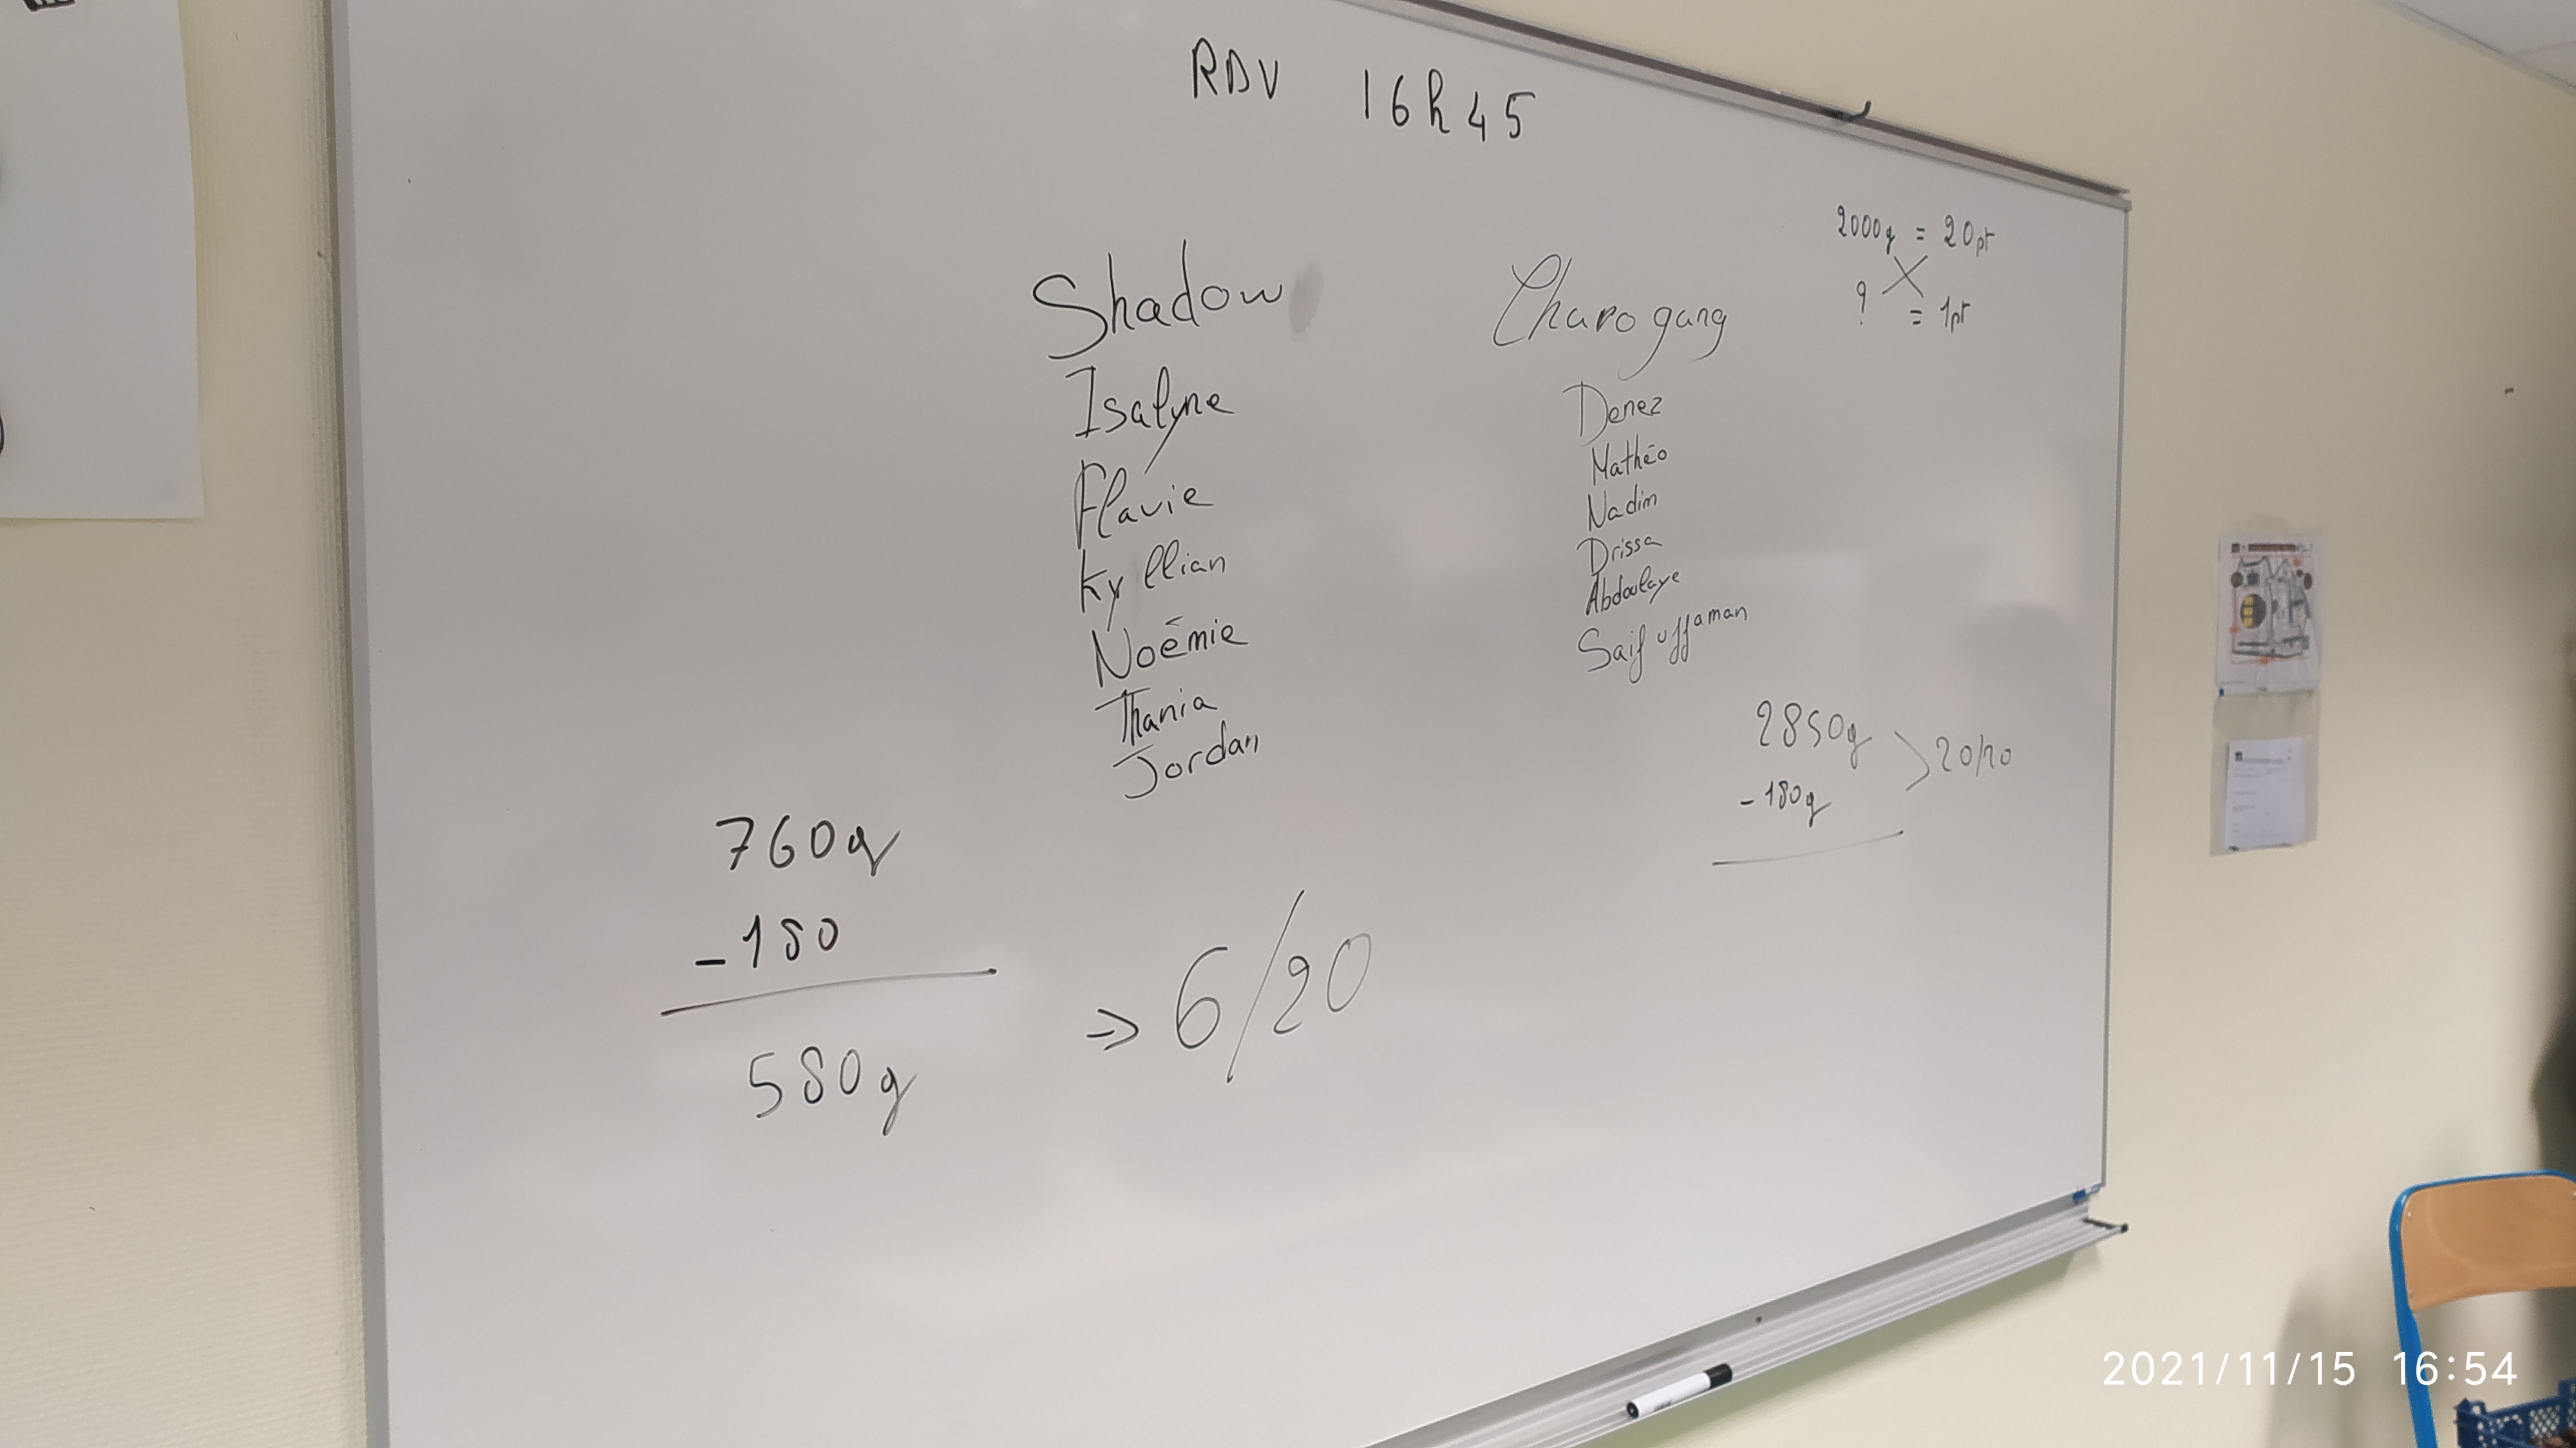 RDV 16h45
2000g = 20pt
? = 1pt
Shadow
Isalyne
Flavie
Kyllian
Noémie
Thania
Jordan
Charo gang
Denez
Mathéo
Nadim
Drissa
Abdoulaye
Saif uffaman
2850g
- 180g
20/20
760g
- 180
580g
⇒ 6/20
2021/11/15 16:54